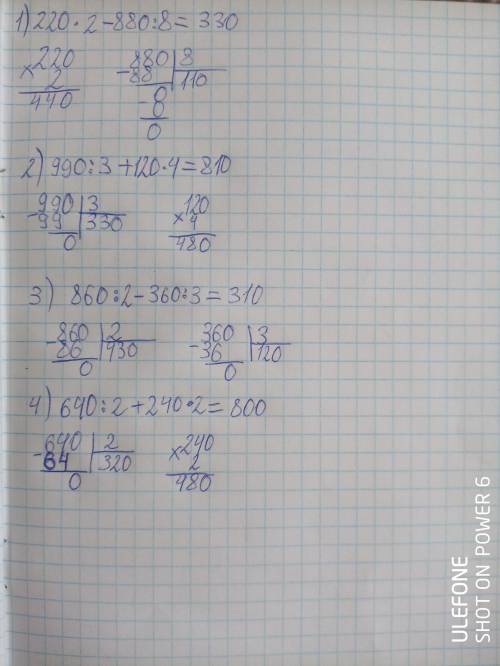 1) 220 · 2 - 880 : 8 = 330
220 880 | 8
× 2 - 88 110
440 - 8
8
0
2) 990 : 3 + 120 · 4 = 810
- 990 | 3 120
99 330 × 4
0 480
3) 860 : 2 - 360 : 3 = 310
- 860 | 2 - 360 | 3
86 430 36 120
0 0
4) 640 : 2 + 240 · 2 = 800
- 640 | 2 × 240
64 320 2
0 480
ULEFONE
SHOT ON POWER 6